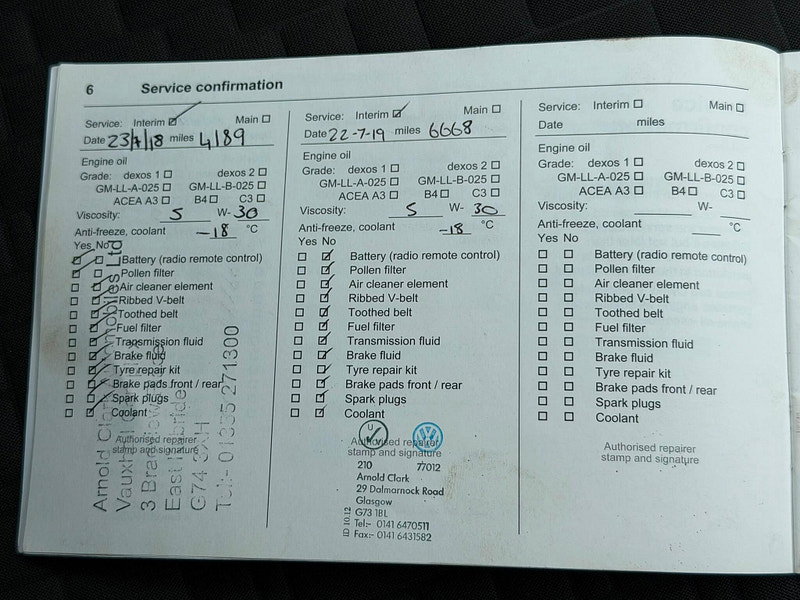 6 Service confirmation
Service: Interim ☑ Main ☐
Date 23/7/18 miles 4189
Engine oil
Grade: dexos 1 ☐ dexos 2 ☐
GM-LL-A-025 ☐ GM-LL-B-025 ☐
ACEA A3 ☐ B4 ☐ C3 ☐
Viscosity: 5 W- 30
Anti-freeze, coolant -18 °C
Yes No
Battery (radio remote control)
Pollen filter
Air cleaner element
Ribbed V-belt
Toothed belt
Fuel filter
Transmission fluid
Brake fluid
Tyre repair kit
Brake pads front / rear
Spark plugs
Coolant
Authorised repairer
stamp and signature
Arnold Clark Automobiles Ltd
Vauxhall
3
East Kilbride
G74
Tel:- 01355 271300
Service: Interim ☑ Main ☐
Date 22-7-19 miles 6668
Engine oil
Grade: dexos 1 ☐ dexos 2 ☐
GM-LL-A-025 ☐ GM-LL-B-025 ☐
ACEA A3 ☐ B4 ☐ C3 ☐
Viscosity: 5 W- 30
Anti-freeze, coolant -18 °C
Yes No
Battery (radio remote control)
Pollen filter
Air cleaner element
Ribbed V-belt
Toothed belt
Fuel filter
Transmission fluid
Brake fluid
Tyre repair kit
Brake pads front / rear
Spark plugs
Coolant
Authorised repairer
stamp and signature
210 77012
Arnold Clark
29 Dalmarnock Road
Glasgow
G73 1BL
Tel:- 0141 6470511
Fax:- 0141 6431582
ID 10.12
Service: Interim ☐ Main ☐
Date miles
Engine oil
Grade: dexos 1 ☐ dexos 2 ☐
GM-LL-A-025 ☐ GM-LL-B-025 ☐
ACEA A3 ☐ B4 ☐ C3 ☐
Viscosity: W-
Anti-freeze, coolant °C
Yes No
Battery (radio remote control)
Pollen filter
Air cleaner element
Ribbed V-belt
Toothed belt
Fuel filter
Transmission fluid
Brake fluid
Tyre repair kit
Brake pads front / rear
Spark plugs
Coolant
Authorised repairer
stamp and signature